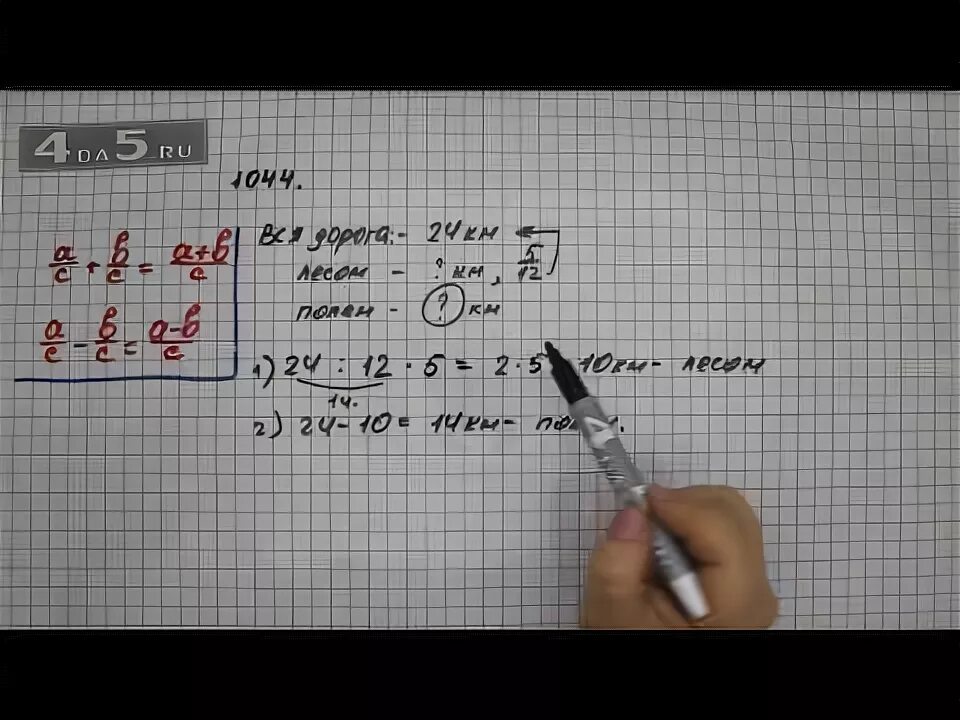 4DA5.RU
1044.
a/c + b/c = a+b/c
a/c - b/c = a-b/c
Вся дорога:- 24 км
лесом - ? км, 5/12
полем - ? км
1) 24 : 12 · 5 = 2 · 5 10км- лесом
1ч.
2) 24-10= 14км-